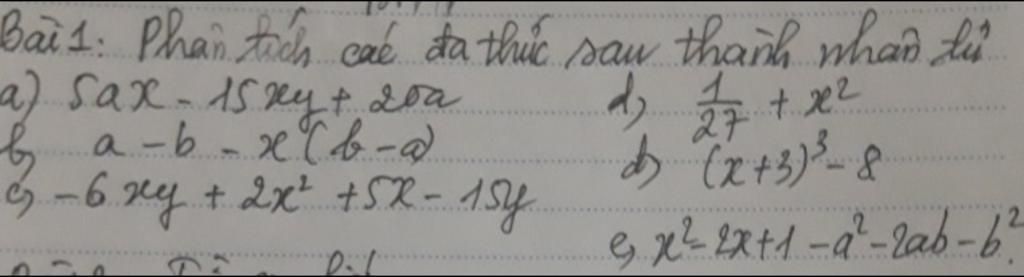 Bài 1: Phân tích các đa thức sau thành nhân tử
a) 5ax - 15xy + 20a
b, a - b - x(b - a)
c, -6xy + 2x² + 5x - 15y
d, 1/27 + x²
đ) (x+3)³ - 8
e, x² - 2x + 1 - a² - 2ab - b².